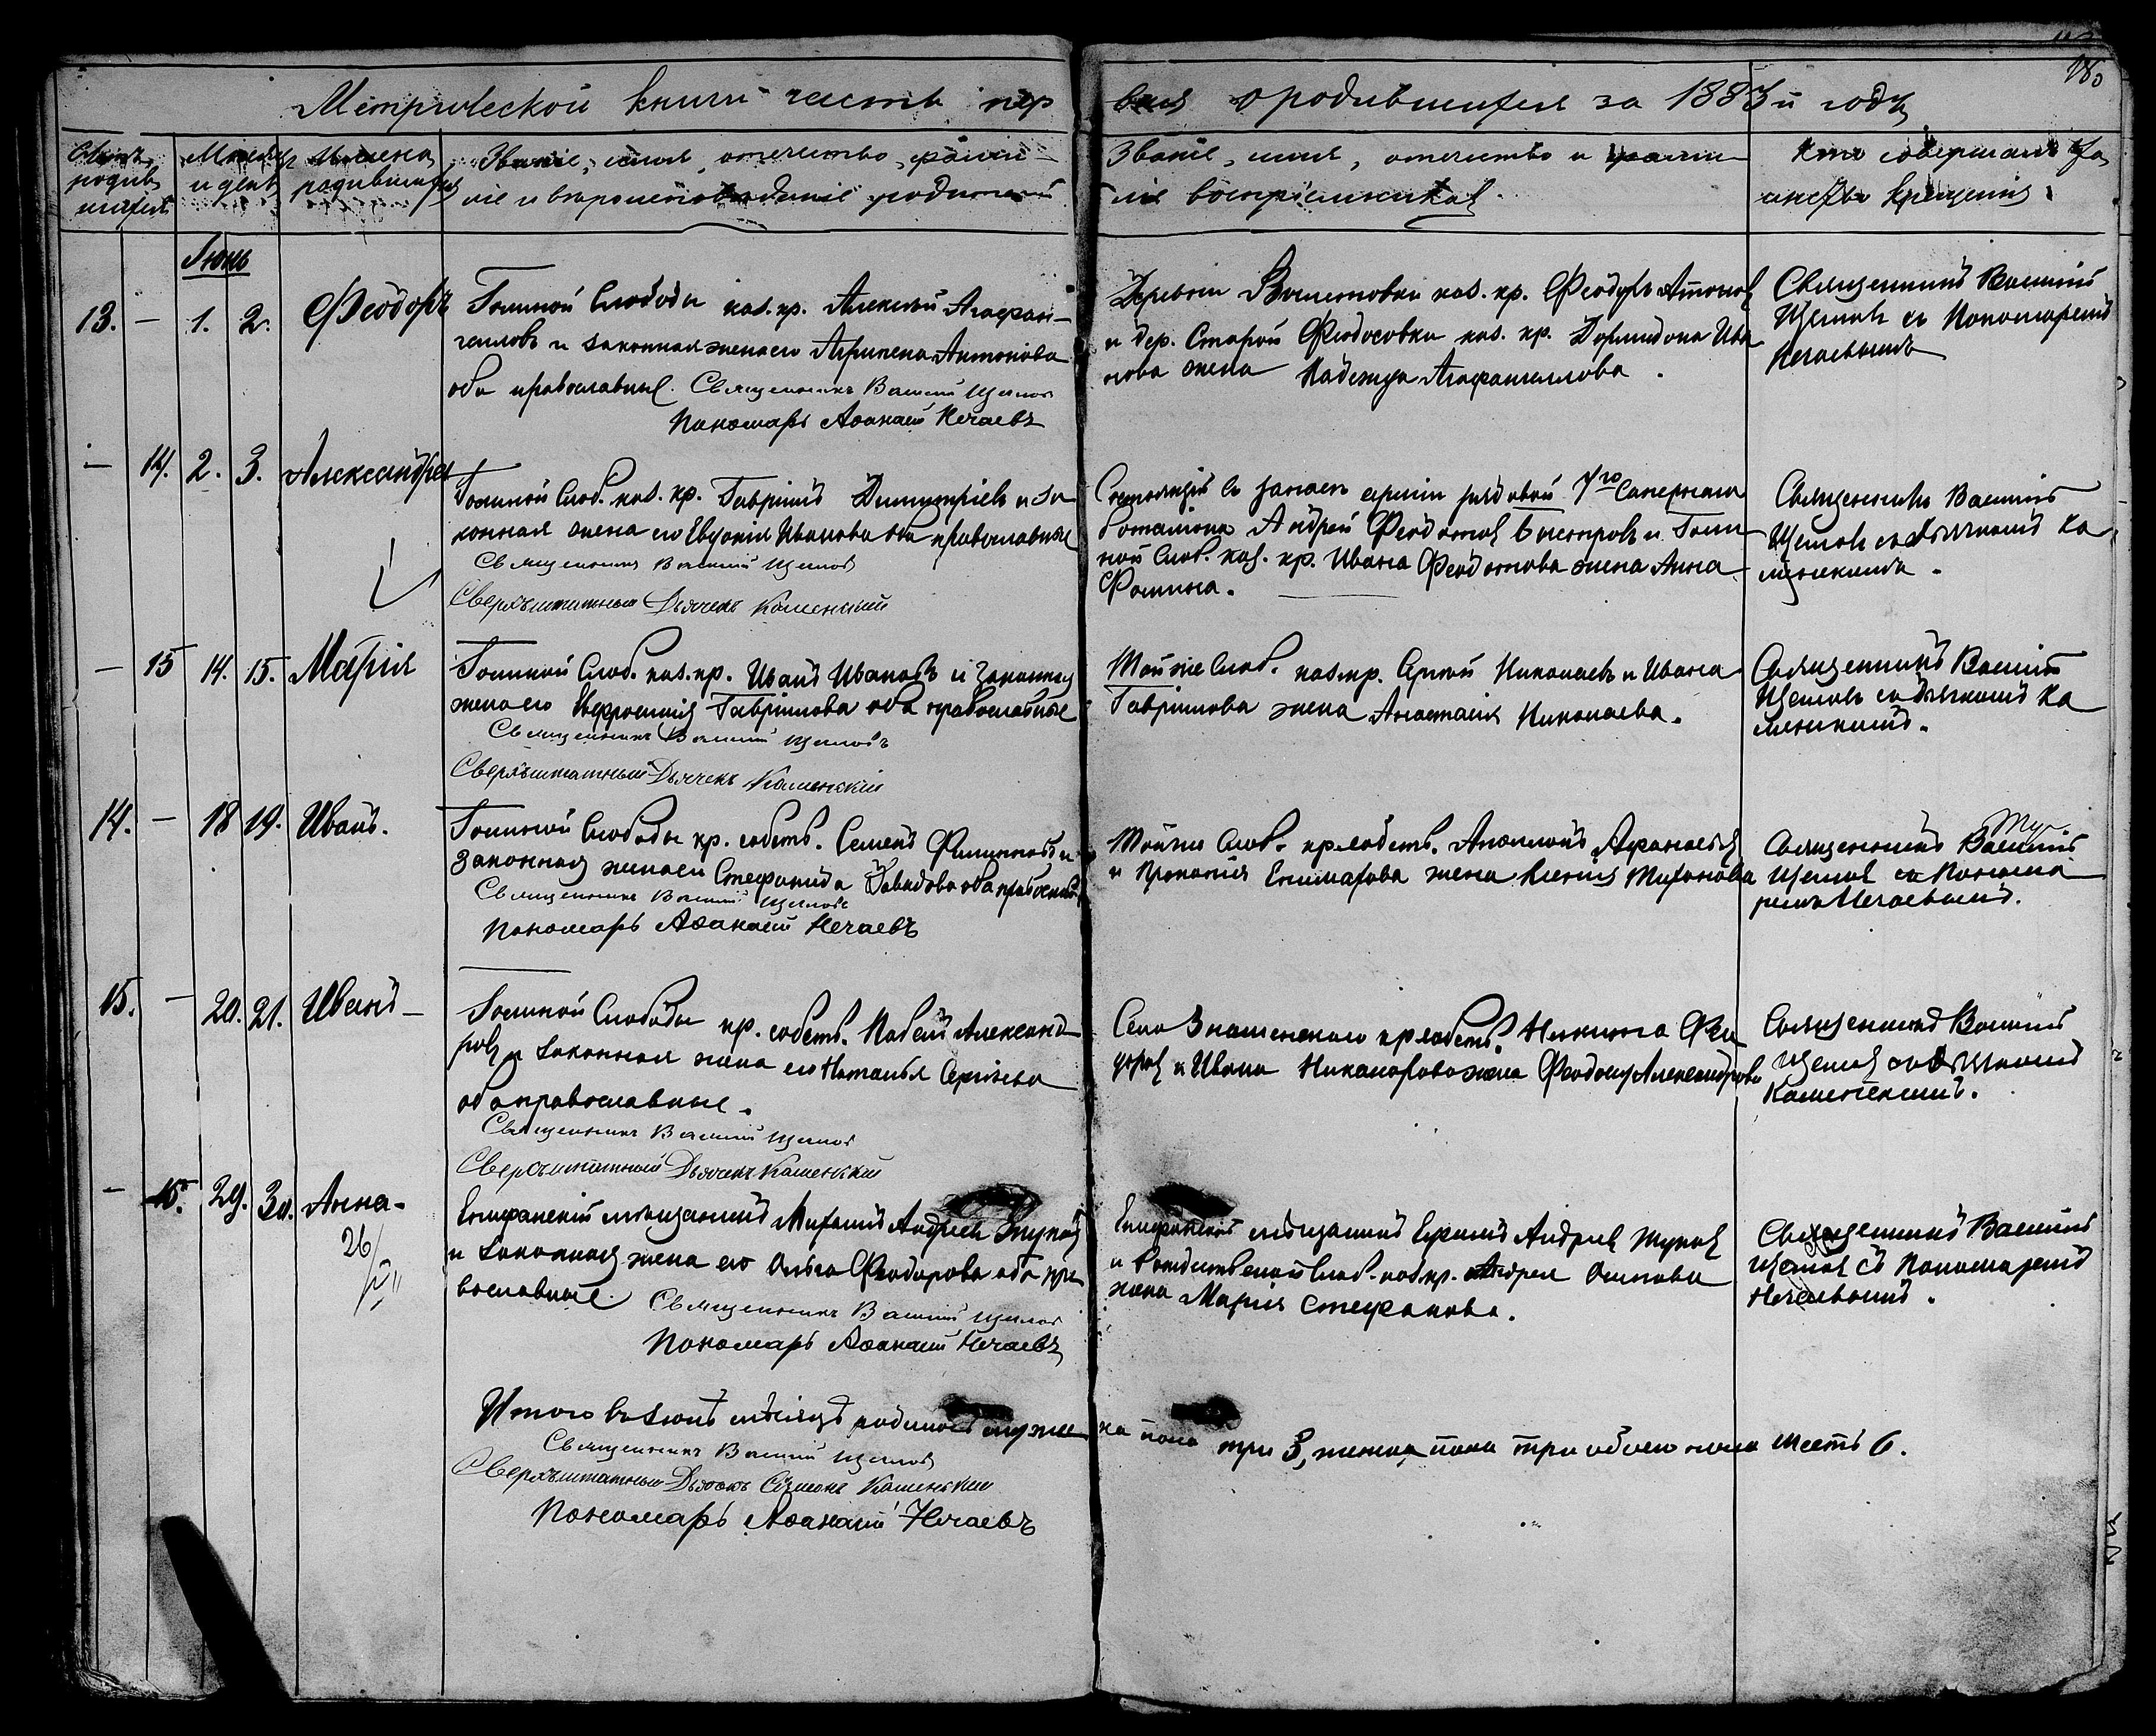 Метрической книги часть пер вая о родившихся за 1883й годъ
Счетъ родив шихся
Месяцъ и день
Имена родившихся
Званіе, имя, отчество, фами
ліе и вероисповеданіе родителей
Званіе, имя, отчество и фами
ліе воспріемниковъ.
Кто совершалъ та
инство крещенія.
Іюнь
13. — 1. 2. Феодоръ
слободы каз. кр. Алексей Агафан-
геловъ и законная жена его Агрипена Антонова
оба православные. Священникъ Василий Щегловъ
Пономарь Аѳанасій Нечаевъ
Деревни каз. кр. Феодулъ
и дер. Старой Федосовки каз. кр. Дормидона Ива
нова жена Надежда Агафангелова.
Священникъ Василій
Щегловъ съ Пономаремъ
Нечаевымъ
— 14. 2. 3. Александра
Слоб. каз. кр. Гавріилъ Димитріевъ и за
конная жена его Евдокія Иванова оба православные
Священникъ Василий Щегловъ
Сверхъштатный Дьячекъ Каменский
Состоящій въ запасе арміи рядовой 7го Сапернаго
баталіона Андрей Федотовъ Быстровъ и
ной Слоб. каз. кр. Ивана Федотова жена Анна
Фомина.
Священникъ Василій
Щегловъ съ дьячкомъ Ка
менскимъ.
— 15 14. 15. Марія
Слоб. каз. кр. Иванъ Ивановъ и законная
жена его Евфросинія Гавріилова оба православные
Священникъ Василий Щегловъ
Сверхъштатный Дьячекъ Каменскій
Той же Слоб. каз. кр. Сергей Николаевъ и Ивана
Гавріилова жена Анастасія Николаева.
Священникъ Василій
Щегловъ съ дьячкомъ Ка
менскимъ.
14. — 18 19. Иванъ.
Слободы кр. собств. Семенъ Филипповъ и
законная жена его Стефанида Давидова оба православные
Священникъ Василий Щегловъ
Пономарь Аѳанасій Нечаевъ
Той же Слоб. кр. собств. Аполлонъ Афанасьевъ
и Прокопія Епимахова жена Ксенія
Священникъ Василій
Щегловъ съ Понома
ремъ Нечаевымъ.
15. — 20. 21. Иванъ —
Слободы кр. собств. Павелъ Александ
ровъ и законная жена его Наталья Сергеева
оба православные.
Священникъ Василий Щегловъ
Сверхъштатный Дьячекъ Каменский
Села Знаменскаго кр. собств. Никита Фео
доровъ и Ивана Никанорова жена Феодосія Александрова
Священникъ Василій
Щегловъ съ дьячкомъ
Каменскимъ.
— 15. 29. 30. Анна —
26/
Епифанскій мещанинъ Михаилъ Андреевъ
и законная жена его Ольга Феодорова оба пра
вославные. Священникъ Василий Щегловъ
Пономарь Аѳанасій Нечаевъ
Епифанскій мещанинъ Андреевъ
и Рождественской Слоб. каз. кр. Андрея Осипова
жена Марія Стефанова.
Священникъ Василій
Щегловъ съ Пономаремъ
Нечаевымъ.
Итого въ Іюнѣ мѣсяцѣ родилось мужес ка пола три 3, женска пола три обоего пола шесть 6.
Священникъ Василий Щегловъ
Сверхъштатный Дьячекъ Симеонъ Каменский
Пономарь Аѳанасій Нечаевъ